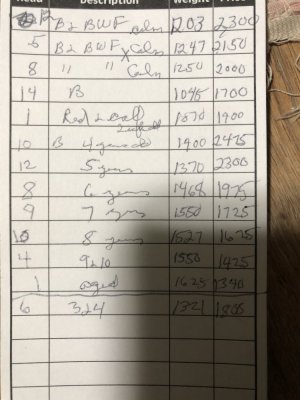 Head Description Weight Price
B2 BWF Calvs 1203 2300
5 B2 BWF X Calvs 1247 2150
8 " " Calvs 1250 2000
14 B 1095 1700
1 Red 1570 1900
10 B 4 years 1400 2475
12 5 years 1370 2300
8 6 years 1468 1975
9 7 yrs 1550 1725
10 8 years 1527 1625
4 9&10 1550 1425
1 aged 1625 1340
6 3&4 1321 1808